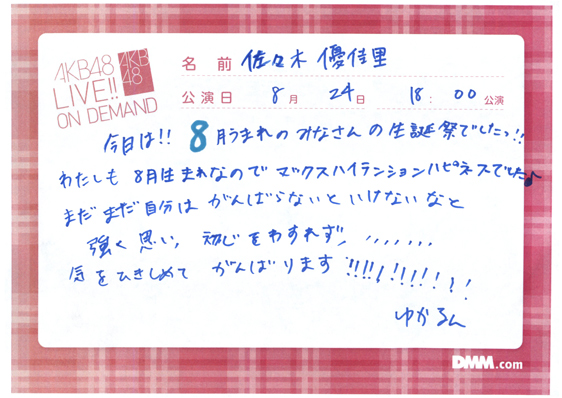 AKB48
LIVE!!
ON DEMAND
AKB
48
名 前 佐々木 優佳里
公演日 8月 24日 18:00公演
今日は!! 8月うまれのみなさんの生誕祭でしたっ!!
わたしも 8月生まれなので マックスハイテンションハピネスでした♪
まだまだ自分は がんばらないと いけないなと
強く思い、初心をわすれず、、、、、、、、
気をひきしめて がんばります!!!!!!!!!!
ゆかるん
DMM.com